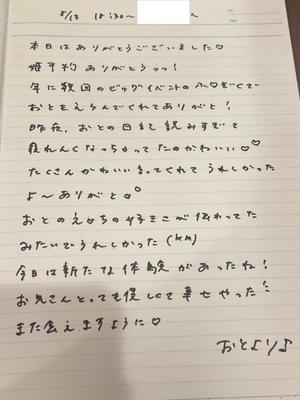 5/13 18:30〜
本日はありがとうございました♡
姫予約ありがとうっっ!
年に数回のビッグイベントの
おとをえらんでくれてありがと!
昨夜、おとの日まで読みすぎて
眠れんくなっちゃってたのかわいい♡♡
たくさんかわいい言ってくれてうれしかった
よ〜ありがと
おとのえちの好きさが伝わってた
みたいでうれしかった
今日は新たな体験があったね!
お兄さんとっても優しくて幸せやった
また会えますように♡
おとより♪